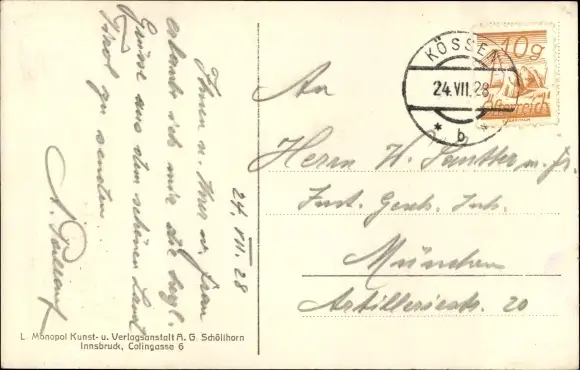 24. VII. 28
Ihnen u. Ihrer w. Frau
erlaubt sich mir die herzl.
Grüsse aus dem schönen Land
Tirol zu senden
L. Monopol Kunst- u. Verlagsanstalt A. G. Schöllhorn
Innsbruck, Colingasse 6
KÖSSEN
24.VII.28
* b *
10g
Österreich
An
Herrn W. Santter
Inst. Gesch. Inh.
München
Artilleriestr. 20